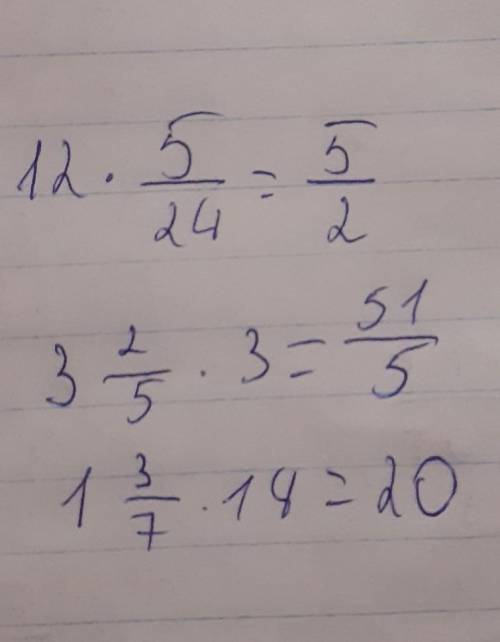 12 · 5/24 = 5/2
3 2/5 · 3 = 51/5
1 3/7 · 14 = 20